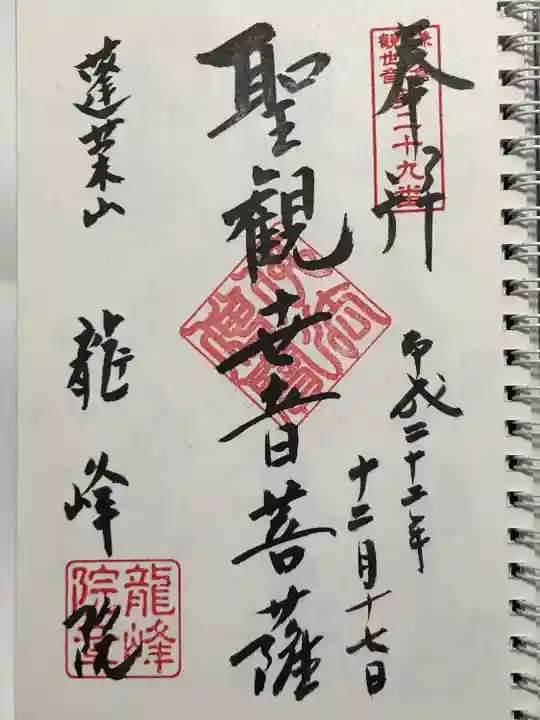 奉拝
平成二十二年
十二月十七日
聖観世音菩薩
蓬莱山
龍峰院
観世音第二十九番
龍峰院